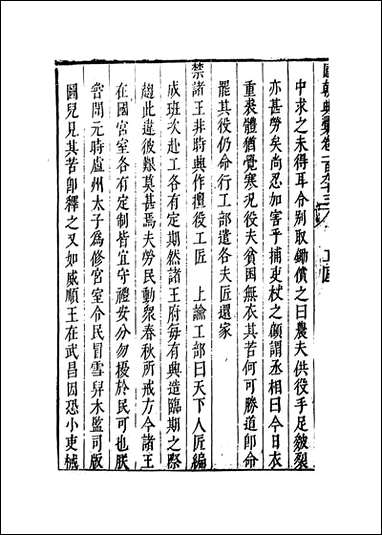 國朝典彙卷一百九十三 工匠
中求之未得耳令別取鋤償之曰農夫供役手足皴裂
亦甚勞矣尚忍加害乎捕吏杖之顧謂丞相曰今日衣
重裘體猶覺寒況役夫貧困無衣其苦何可勝道即命
罷其役仍命行工部遣各夫匠還家
禁諸王非時興作擅役工匠 上諭工部曰天下人匠編
成班次赴工各有定期然諸王府每有興造臨期之際
趨此違彼艱莫甚焉夫勞民動衆春秋所戒方今諸王
在國宮室各有定制皆宜守禮安分勿擾於民可也朕
嘗聞元時盧州太子為修宮室令民冒雪舁木監司版
圖兒見其苦即釋之又如威順王在武昌因恐小吏棫